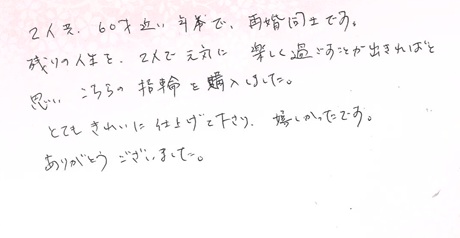 2人共、60才近い年令で、再婚同士です。
残りの人生を、2人で元気に 楽しく過ごすことが出きればと
思い こちらの指輪を購入しました。
とてもきれいに仕上げて下さり、嬉しかったです。
ありがとうございました。